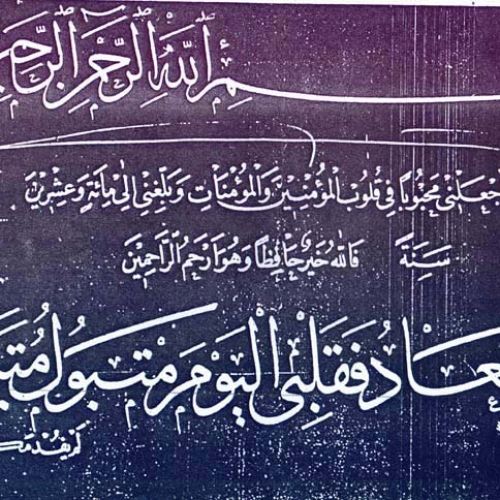 ـسم الله الرحمن الرحيـ
جعلني محبوبا في قلوب المؤمنين والمؤمنات وبلغني الى مائة وعشرين
سنة فالله خير حافظا وهو ارحم الراحمين
ـعاد فقلبي اليوم متبول متيـ
لم يفد مكـ